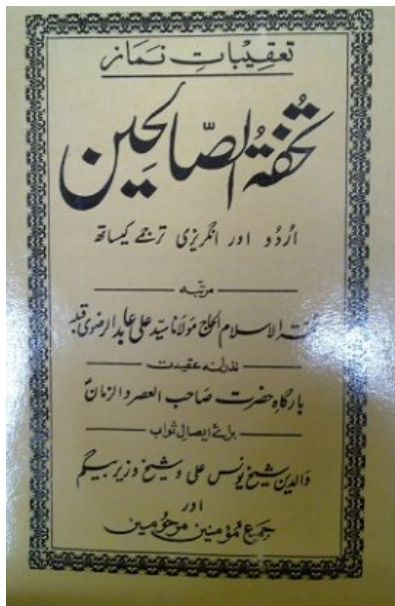 تعقیباتِ نماز
تحُفۃُ الصّالحین
اُردُو اور انگریزی ترجمے کیساتھ
مرتبّہ
ثقتہ الاسلام الحاج مولانا سیّد علی عابد الرضوی قبلہ
نذرانۂ عقیدت
بارگاہِ حضرت صاحب العصر والزمانؑ
برائے ایصالِ ثواب
والدین شیخ یونس علی و شیخ وزیر بیگم
اور
جمیع مُؤمنین مرحومین